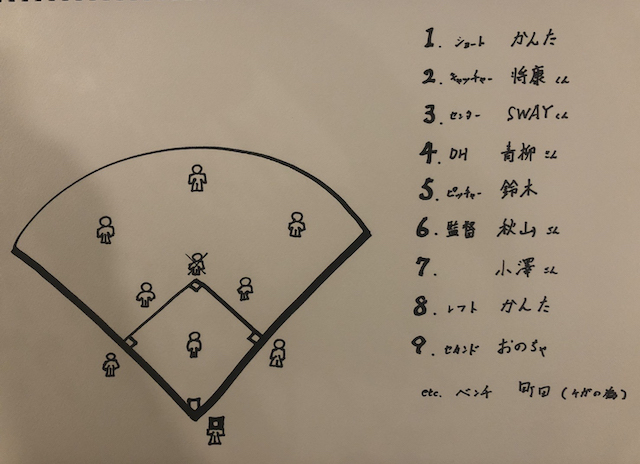 1. ショート かんた
2. キャッチャー 将康くん
3. センター SWAYくん
4. DH 青柳さん
5. ピッチャー 鈴木
6. 監督 秋山さん
7. 小澤さん
8. レフト かんた
9. セカンド おのちゃ
etc. ベンチ 町田(ケガの為)